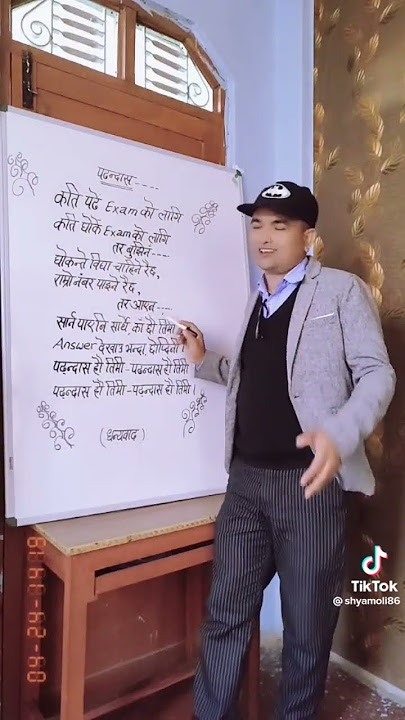 पढन्दास----
कति पढे Exam को लागि
कति घोके Exam को लागि
तर बुझिन----
घोकन्ते विद्या चाहिने रैछ,
राम्रो नंबर पाइने रैछ,
तर आएन----
सार्न पाएनि सार्थे का हौ तिमी
Answer देखाउ भन्दा छोप्दिनी।
पढ्न्दास हौ तिमी-पढन्दास हौ तिमी।
पढ्न्दास हौ तिमी-पढन्दास हौ तिमी।
(धन्यवाद)
TikTok
@shyamoli86